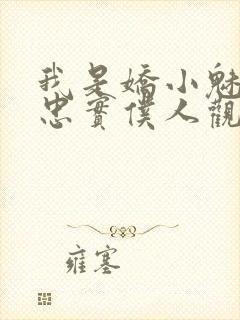 我是嬌小魅
忠實僕人觀
雍塞